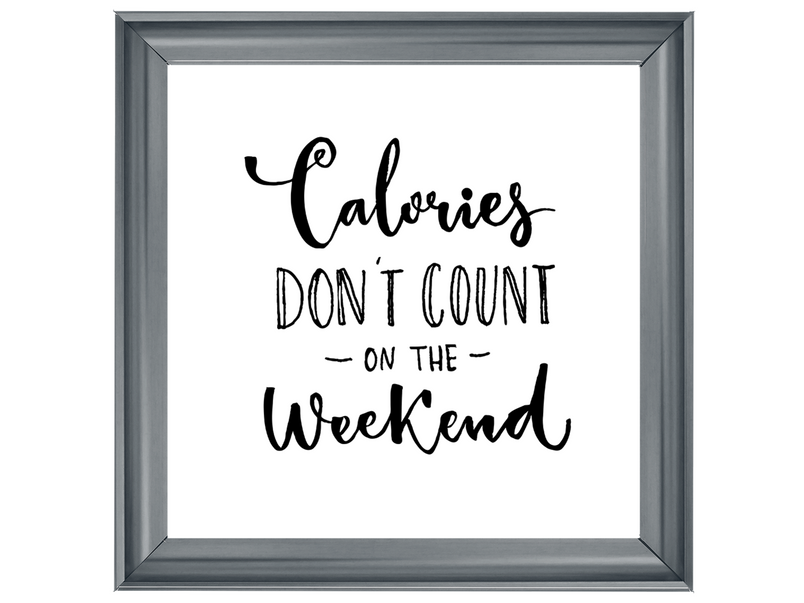 Calories
DON'T COUNT
– ON THE –
Weekend